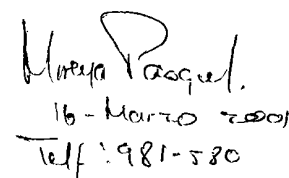 Mireya Pasquel.
16 - Marzo 2001
Telf : 981-580